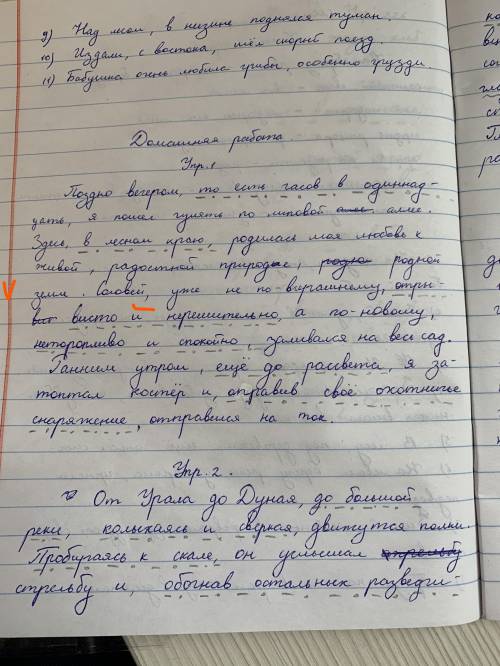 9) Над мхом, в низине поднялся туман.
10) Издали, с востока, шёл скорый поезд.
11) Бабушка очень любила грибы, особенно грузди
Домашняя работа
Упр. 1
Поздно вечером, то есть часов в одиннад-
цать, я пошёл гулять по липовой аллее.
Здесь, в лесном краю, родилась моя любовь к
живой, радостной природе, родной
земле. Соловей, уже не по-вчерашнему, отры-
висто и нерешительно, а по-новому,
неторопливо и спокойно, заливался на весь сад.
Ранним утром, ещё до рассвета, я за-
топтал костёр и, отправив своё охотничье
снаряжение, отправился на ток.
Упр. 2.
От Урала до Дуная, до большой
реки, колыхаясь и сверкая, движутся полки.
Пробираясь к скале, он услышал
стрельбу и, обогнав остальных разведчи-